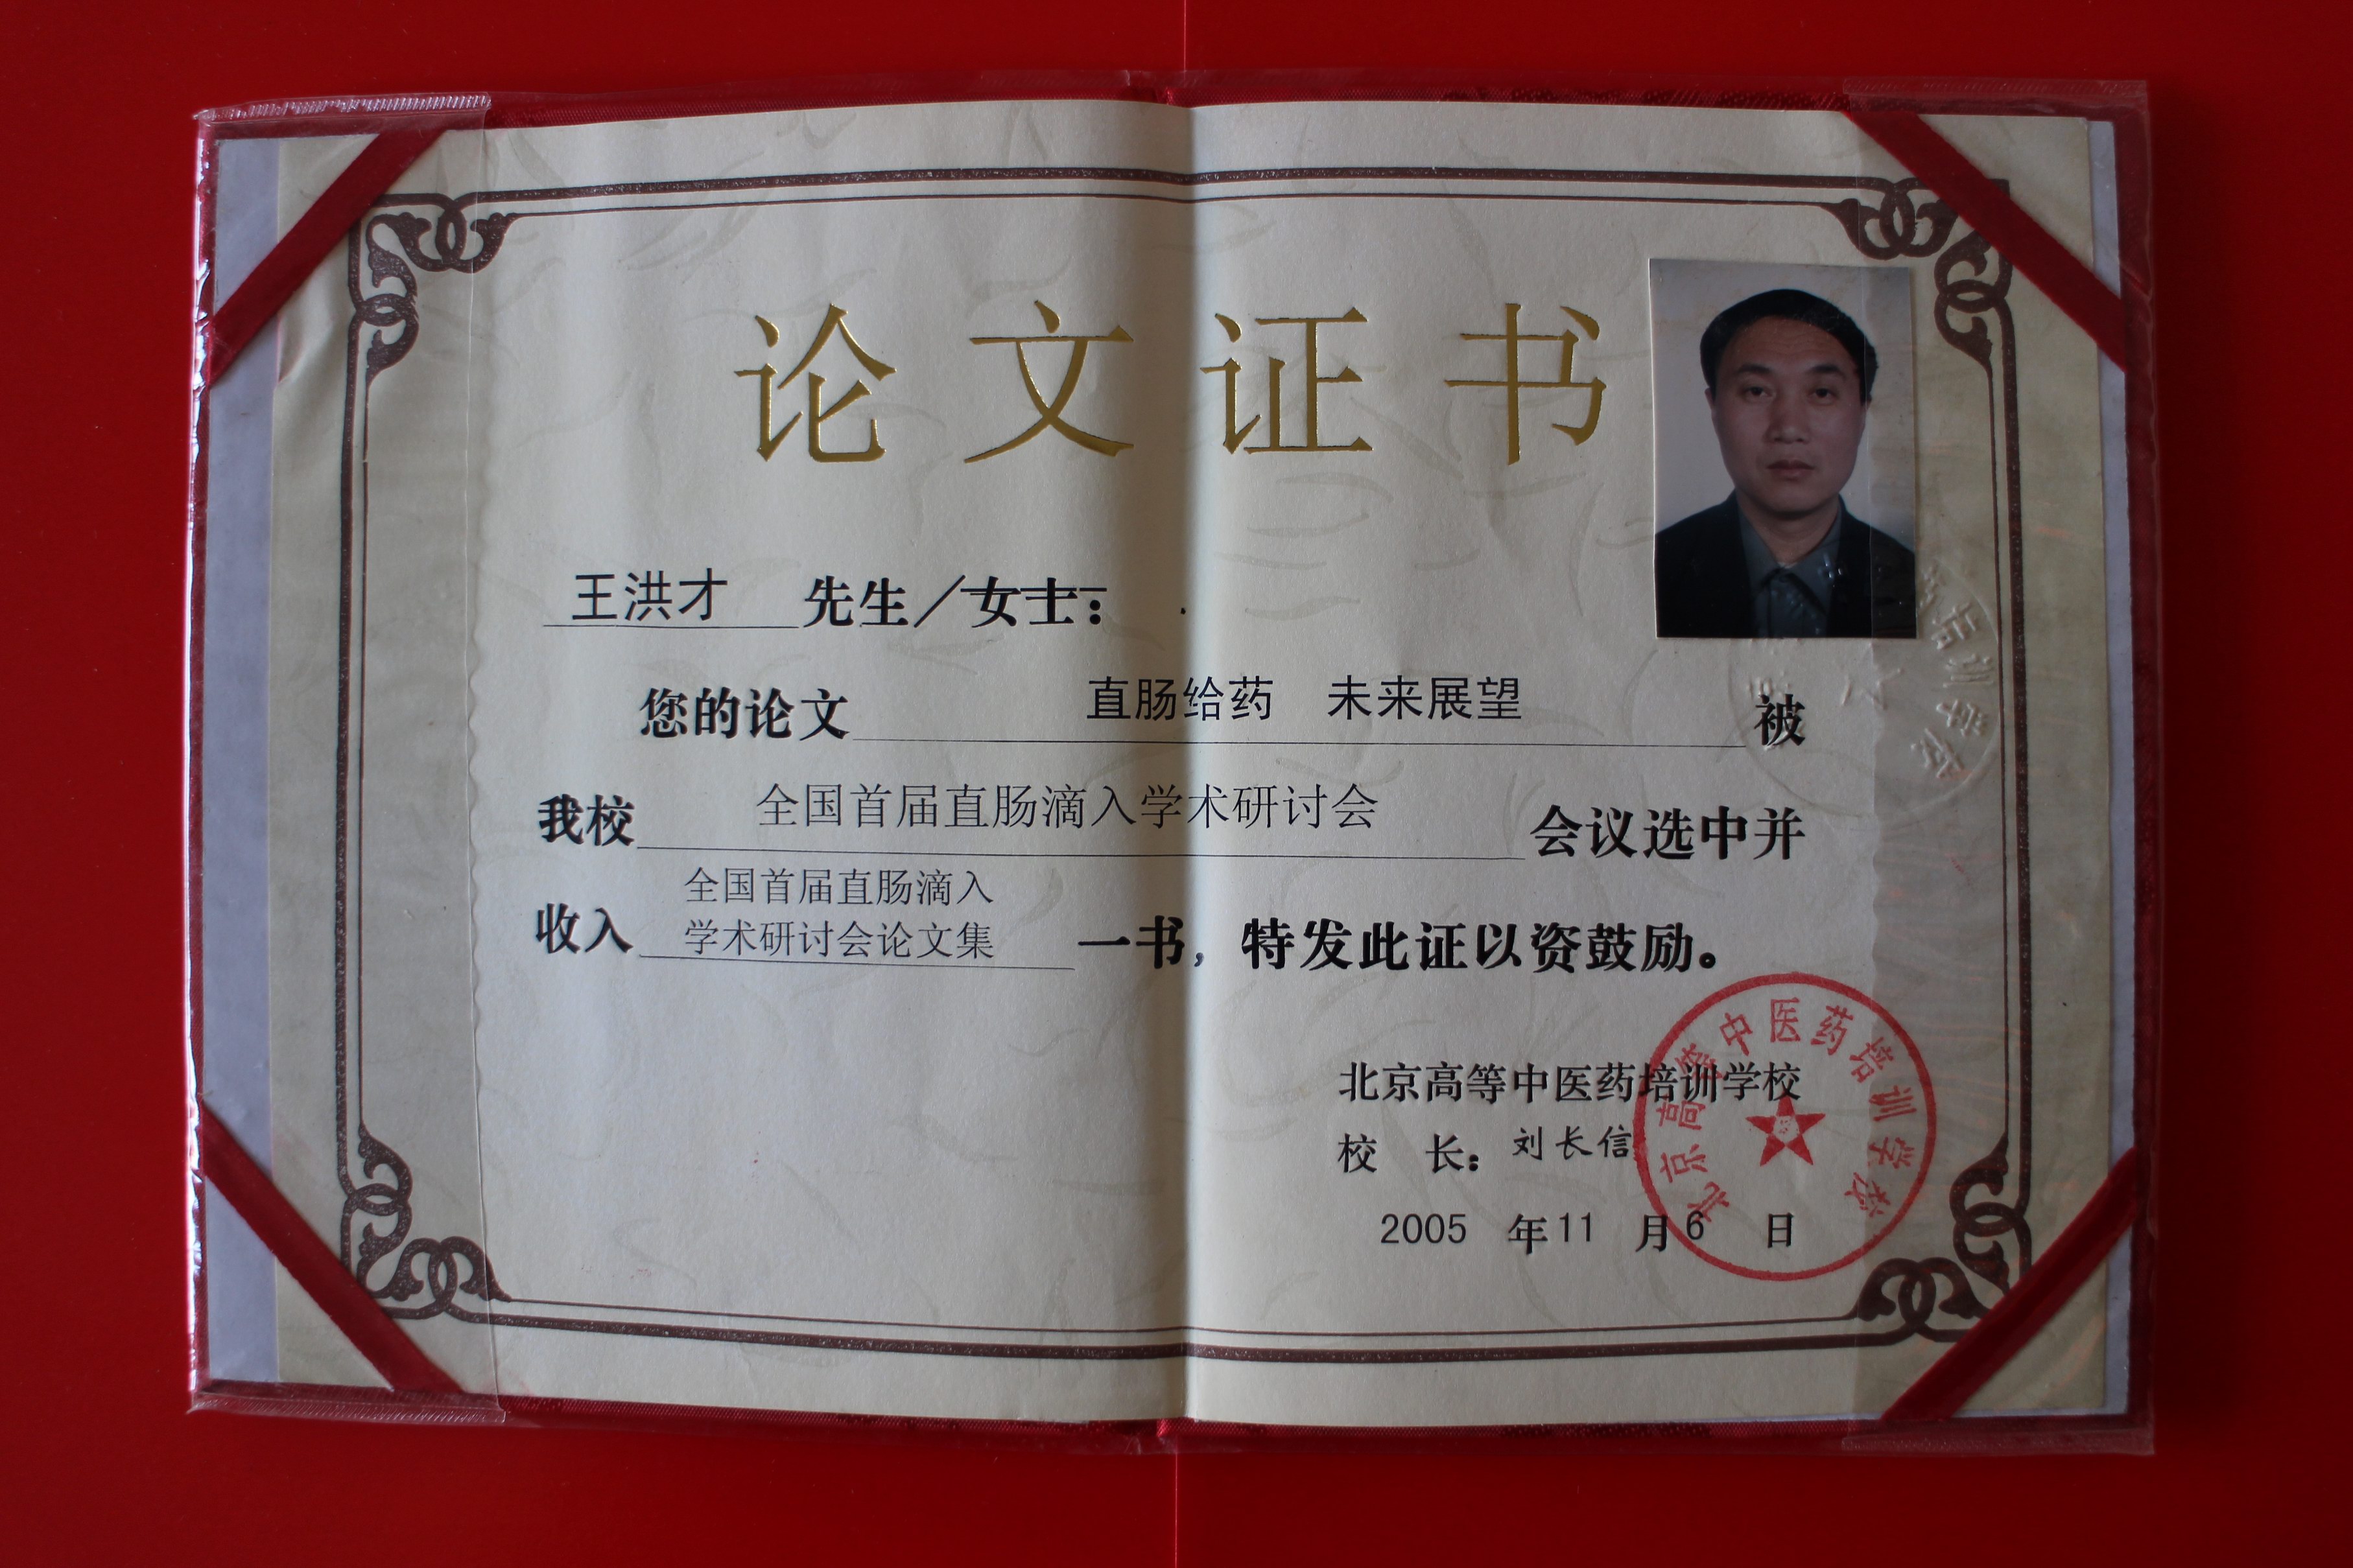 论文证书
王洪才 先生／女士：
您的论文 直肠给药 未来展望 被
我校 全国首届直肠滴入学术研讨会 会议选中并
收入 全国首届直肠滴入
学术研讨会论文集 一书，特发此证以资鼓励。
北京高等中医药培训学校
校 长：刘长信
2005 年 11 月 6 日
北京高等中医药培训学校